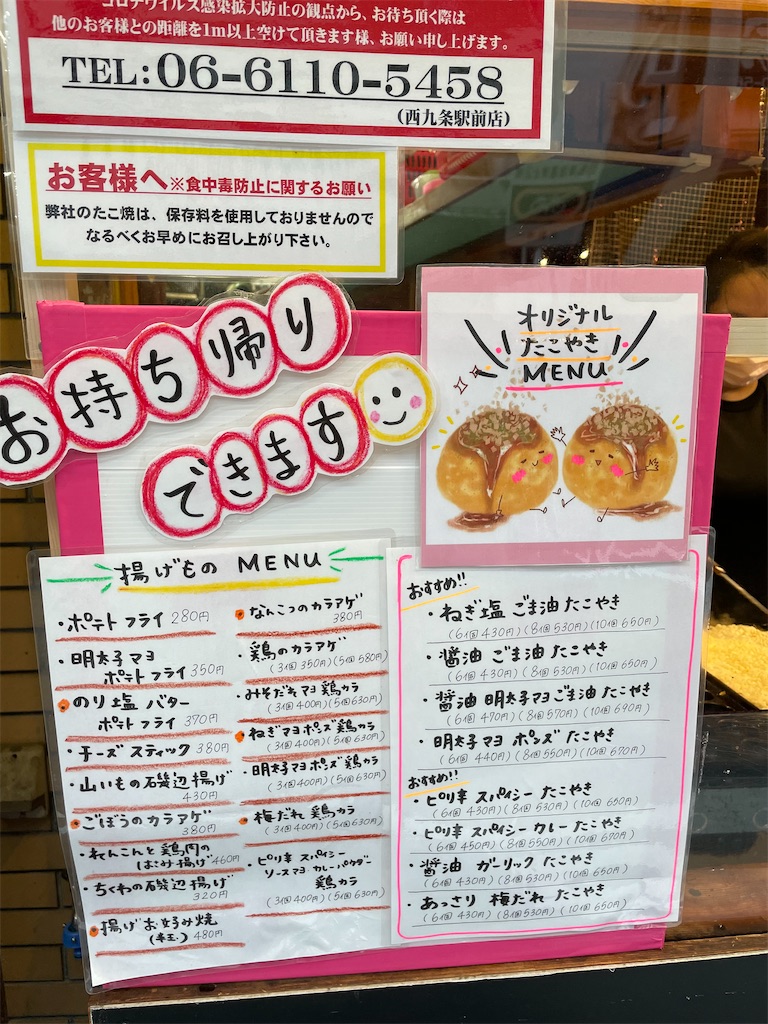 コロナウイルス感染拡大防止の観点から、お待ち頂く際は
他のお客様との距離を1m以上空けて頂きます様、お願い申し上げます。
TEL:06-6110-5458
(西九条駅前店)
お客様へ※食中毒防止に関するお願い
弊社のたこ焼は、保存料を使用しておりませんので
なるべくお早めにお召し上がり下さい。
お持ち帰り
できます
オリジナル
たこやき
MENU
揚げもの MENU
・ポテトフライ 280円
・明太子マヨ
ポテトフライ 350円
・のり塩 バター
ポテトフライ 370円
・チーズスティック 380円
・山いもの磯辺揚げ
430円
・ごぼうのカラアゲ
380円
・れんこんと鶏肉の
はさみ揚げ 460円
・ちくわの磯辺揚げ
320円
・揚げお好み焼
(半玉) 480円
・なんこつのカラアゲ
380円
・鶏のカラアゲ
(3個 350円)(5個 580円)
・みそだれマヨ 鶏カラ
(3個 400円)(5個 630円)
・ねぎマヨポンズ 鶏カラ
(3個 400円)(5個 630円)
・明太子マヨポンズ 鶏カラ
(3個 400円)(5個 630円)
・梅だれ 鶏カラ
(3個 400円)(5個 630円)
・ピリ辛 スパイシー
ソースマヨ カレーパウダー
鶏カラ
(3個 400円)(5個 630円)
おすすめ!!
・ねぎ塩 ごま油 たこやき
(6個 430円)(8個 530円)(10個 650円)
・醤油 ごま油 たこやき
(6個 430円)(8個 530円)(10個 650円)
・醤油 明太子マヨ ごま油 たこやき
(6個 470円)(8個 570円)(10個 690円)
・明太子マヨ ポンズ たこやき
(6個 440円)(8個 550円)(10個 670円)
おすすめ!!
・ピリ辛 スパイシー たこやき
(6個 430円)(8個 530円)(10個 650円)
・ピリ辛 スパイシー カレー たこやき
(6個 450円)(8個 550円)(10個 670円)
・醤油 ガーリック たこやき
(6個 430円)(8個 530円)(10個 650円)
・あっさり 梅だれ たこやき
(6個 430円)(8個 530円)(10個 650円)